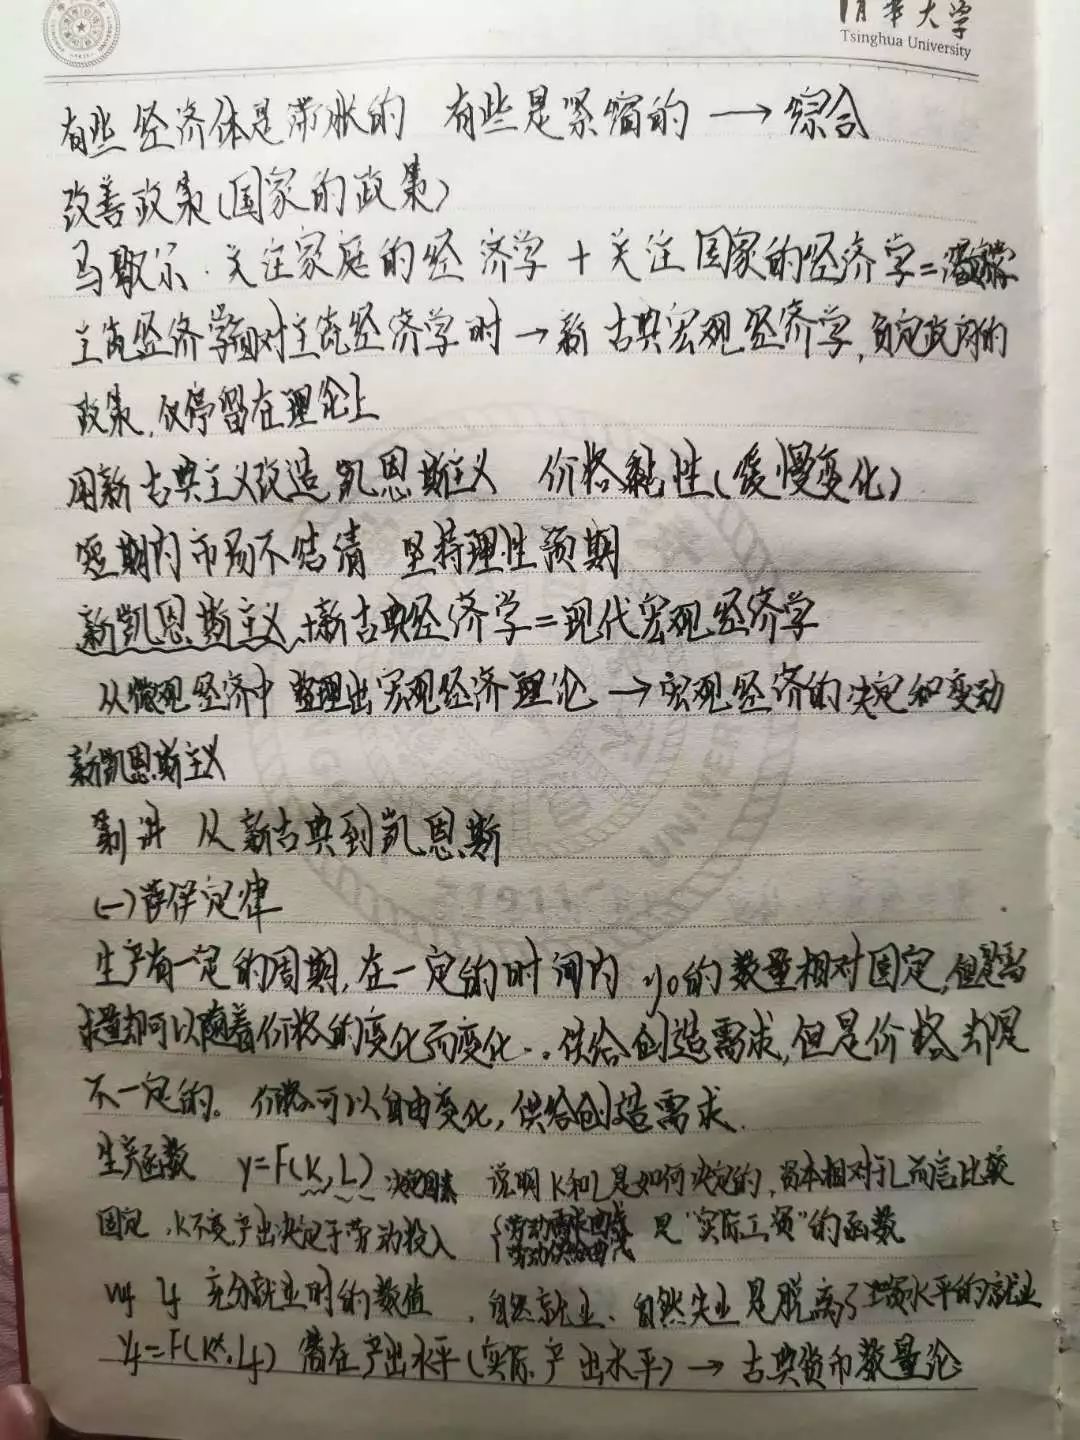 清华大学
Tsinghua University
有些经济体是滞胀的 有些是紧缩的 → 综合
改善政策(国家的政策)
马歇尔.关注家庭的经济学+关注国家的经济学=
主流经济学面对主流经济学时→新古典宏观经济学,否定政府的
政策,仅停留在理论上
用新古典主义改造凯恩斯主义 价格黏性(缓慢变化)
短期内市场不结清 坚持理性预期
新凯恩斯主义+新古典经济学=现代宏观经济学
从微观经济中整理出宏观经济理论→宏观经济的决定和变动
新凯恩斯主义
第 讲 从新古典到凯恩斯
(一)萨伊定律
生产有一定的周期,在一定的时间内 y0的数量相对固定,但是需
求量却可以随着价格的变化而变化..供给创造需求,但是价格却是
不一定的。价格可以自由变化,供给创造需求.
生产函数 y=F(K,L) 决定因素 说明K和L是如何决定的,资本相对于L而言比较
固定,K不变,产出决定于劳动投入 {劳动需求曲线 劳动供给曲线 是"实际工资"的函数
Lf 充分就业时的数值,自然就业、自然失业是脱离了工资水平的就业
Yf=F(K*,Lf) 潜在产出水平(实际产出水平)→古典货币数量论